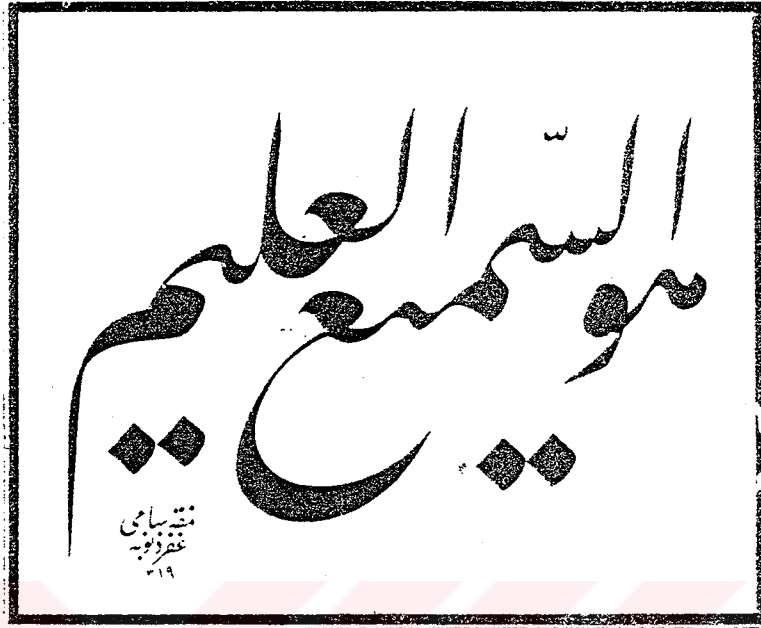 هو السّميع العليم
نمقه سامي
غفر ذنوبه
٣١٩